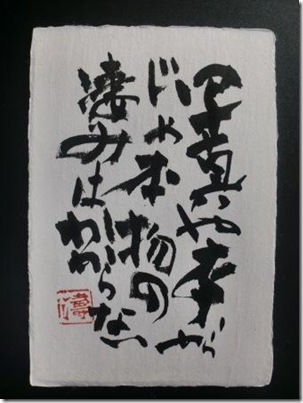 写真や本から
じゃ本物の
凄みはわからない